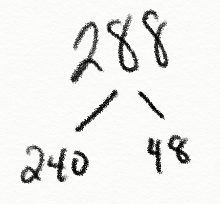 288
240 48